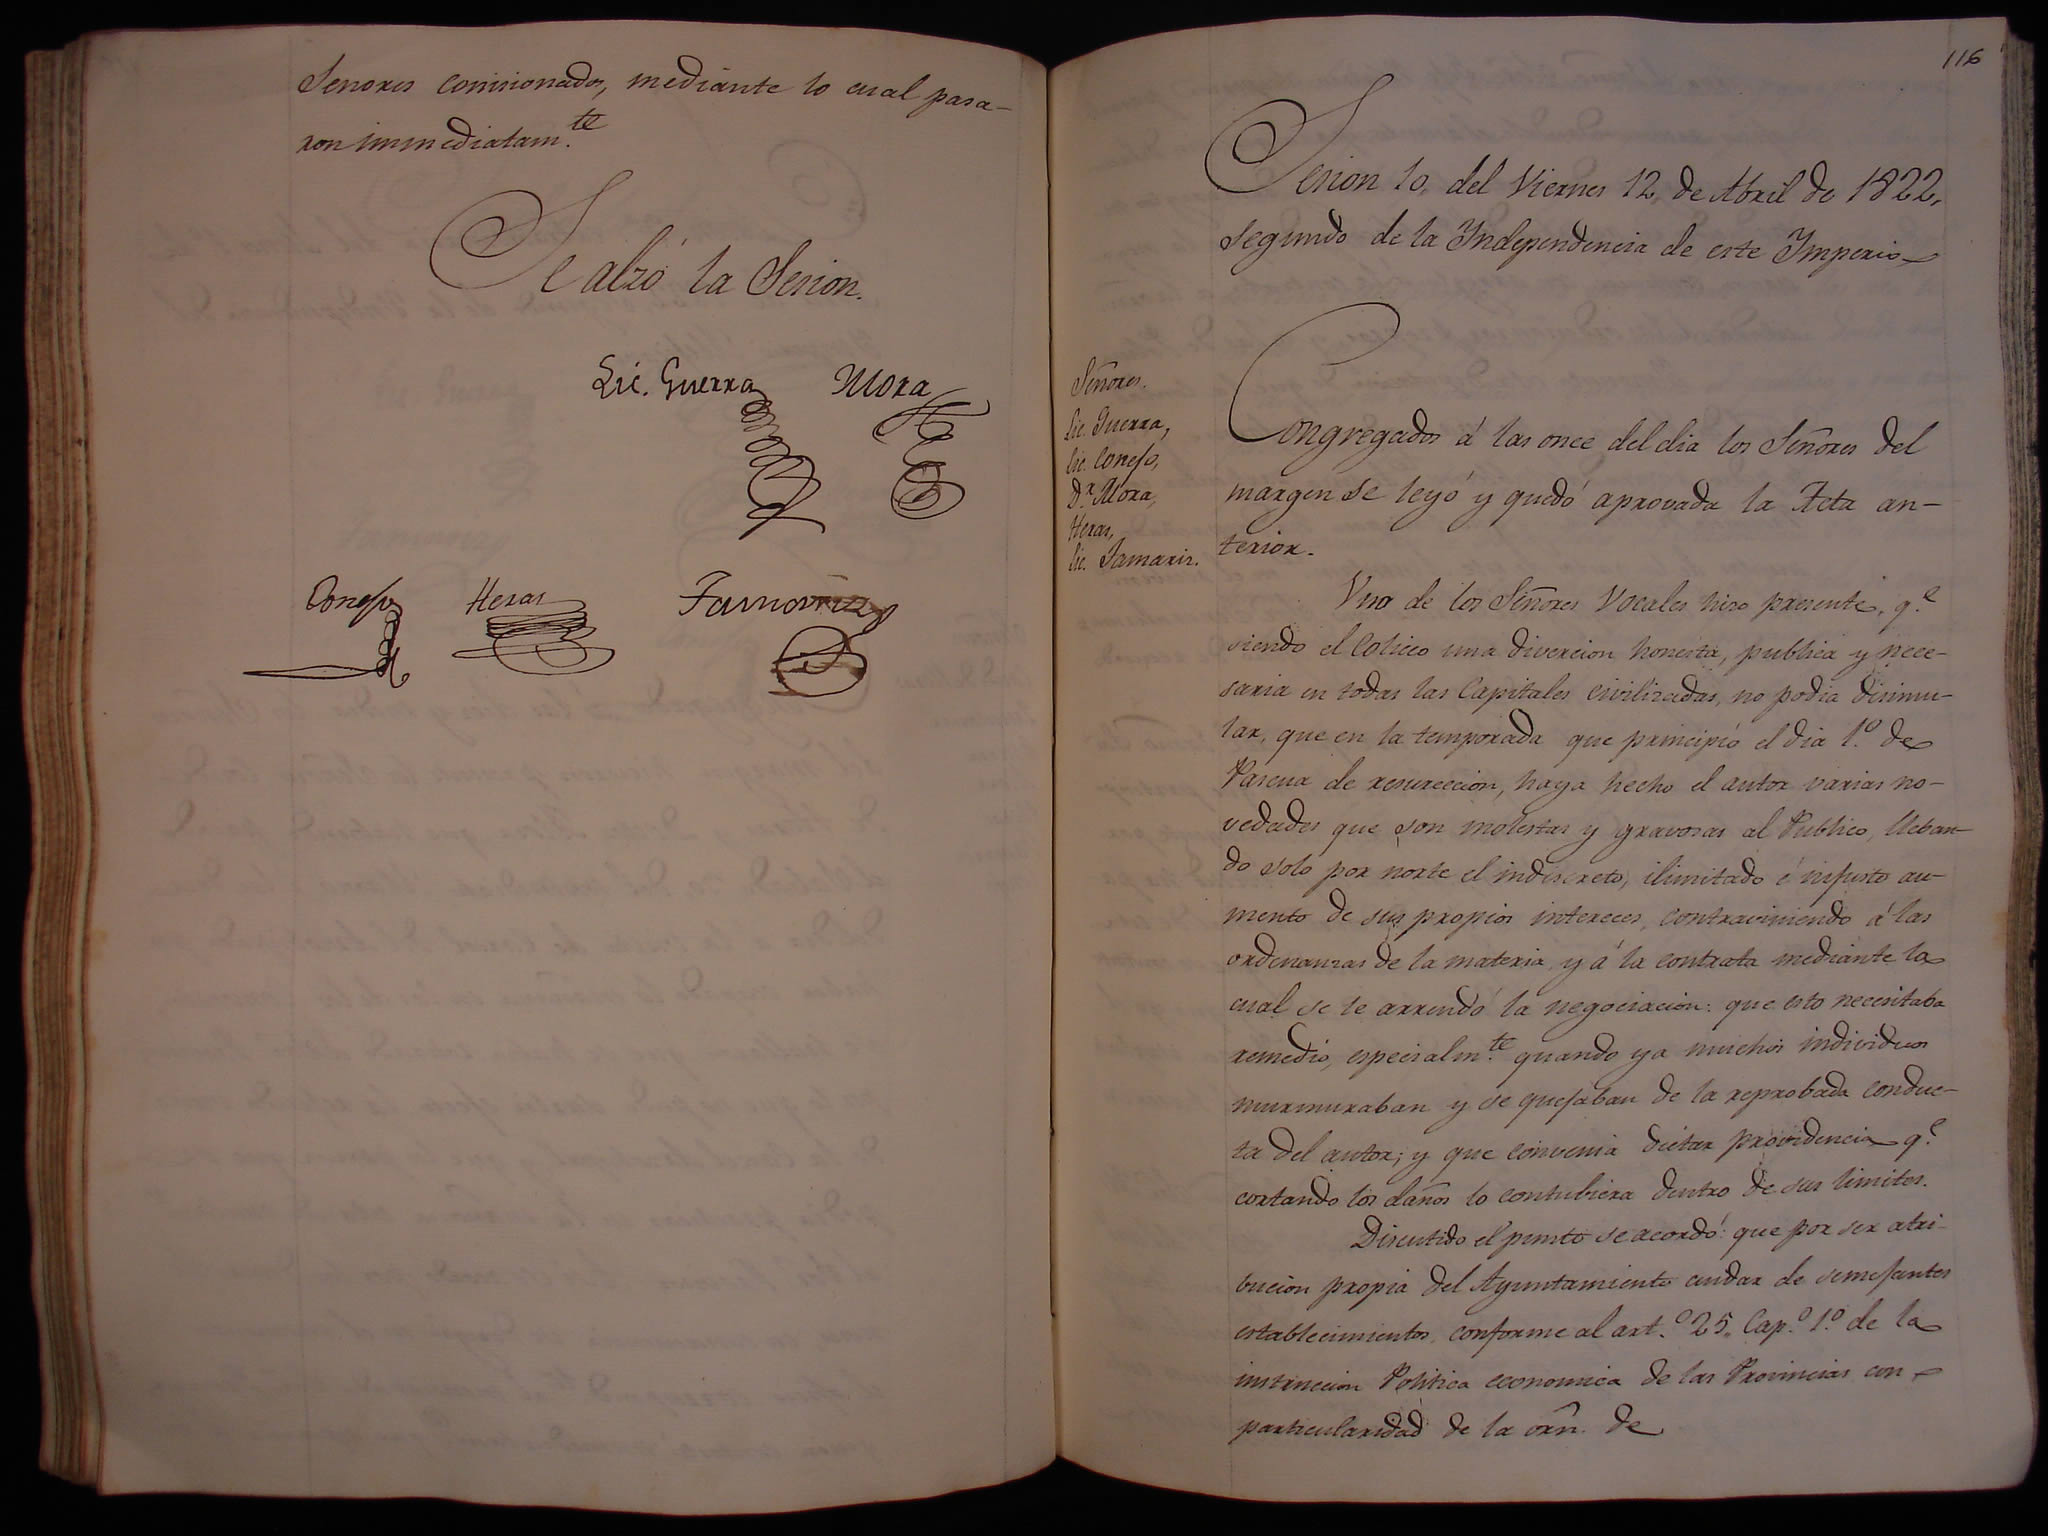 Senores comisionados, mediante lo cual pasa-
ron immediatam.te
Se alzó la Sesion.
Lic. Guerra Mora
Conejo Heras Tamariz
116
Sesion 10, del Viernes 12, de Abril de 1822,
segundo de la Independencia de este Imperio
Señores.
Lic. Guerra,
Lic. Conejo,
Dr. Mora,
Heras,
Lic. Tamariz.
Congregados á las once del dia los Señores del
margen se leyó y quedó aprovada la Acta an-
terior.
Uno de los Señores Vocales hizo presente, q.e
siendo el Coliceo una divercion honesta, publica y nece-
saria en todas las Capitales civilizadas, no podia disimu-
lar, que en la temporada que principió el dia 1.o de
Pascua de resureccion, haya hecho el autor varias no-
vedades que son molestas y gravosas al Publico, lleban-
do solo por norte el indiscreto, ilimitado é injusto au-
mento de sus propios intereces, contraviniendo á las
ordenanzas de la materia, y á la contrata mediante la
cual se le arrendó la negociacion: que esto necesitaba
remedio, especialm.te quando ya muchos individuos
murmuraban y se quejaban de la reprobada conduc-
ta del autor; y que convenia dictar providencia q.e
cortando los daños lo contubiera dentro de sus limites.
Discutido el punto se acordó: que por ser atri-
bucion propia del Ayuntamiento cuidar de semejantes
establecimientos, conforme al art.o 25,, Cap.o 1.o de la
instruccion Politica economica de las Provincias con
particularidad de la orn. de